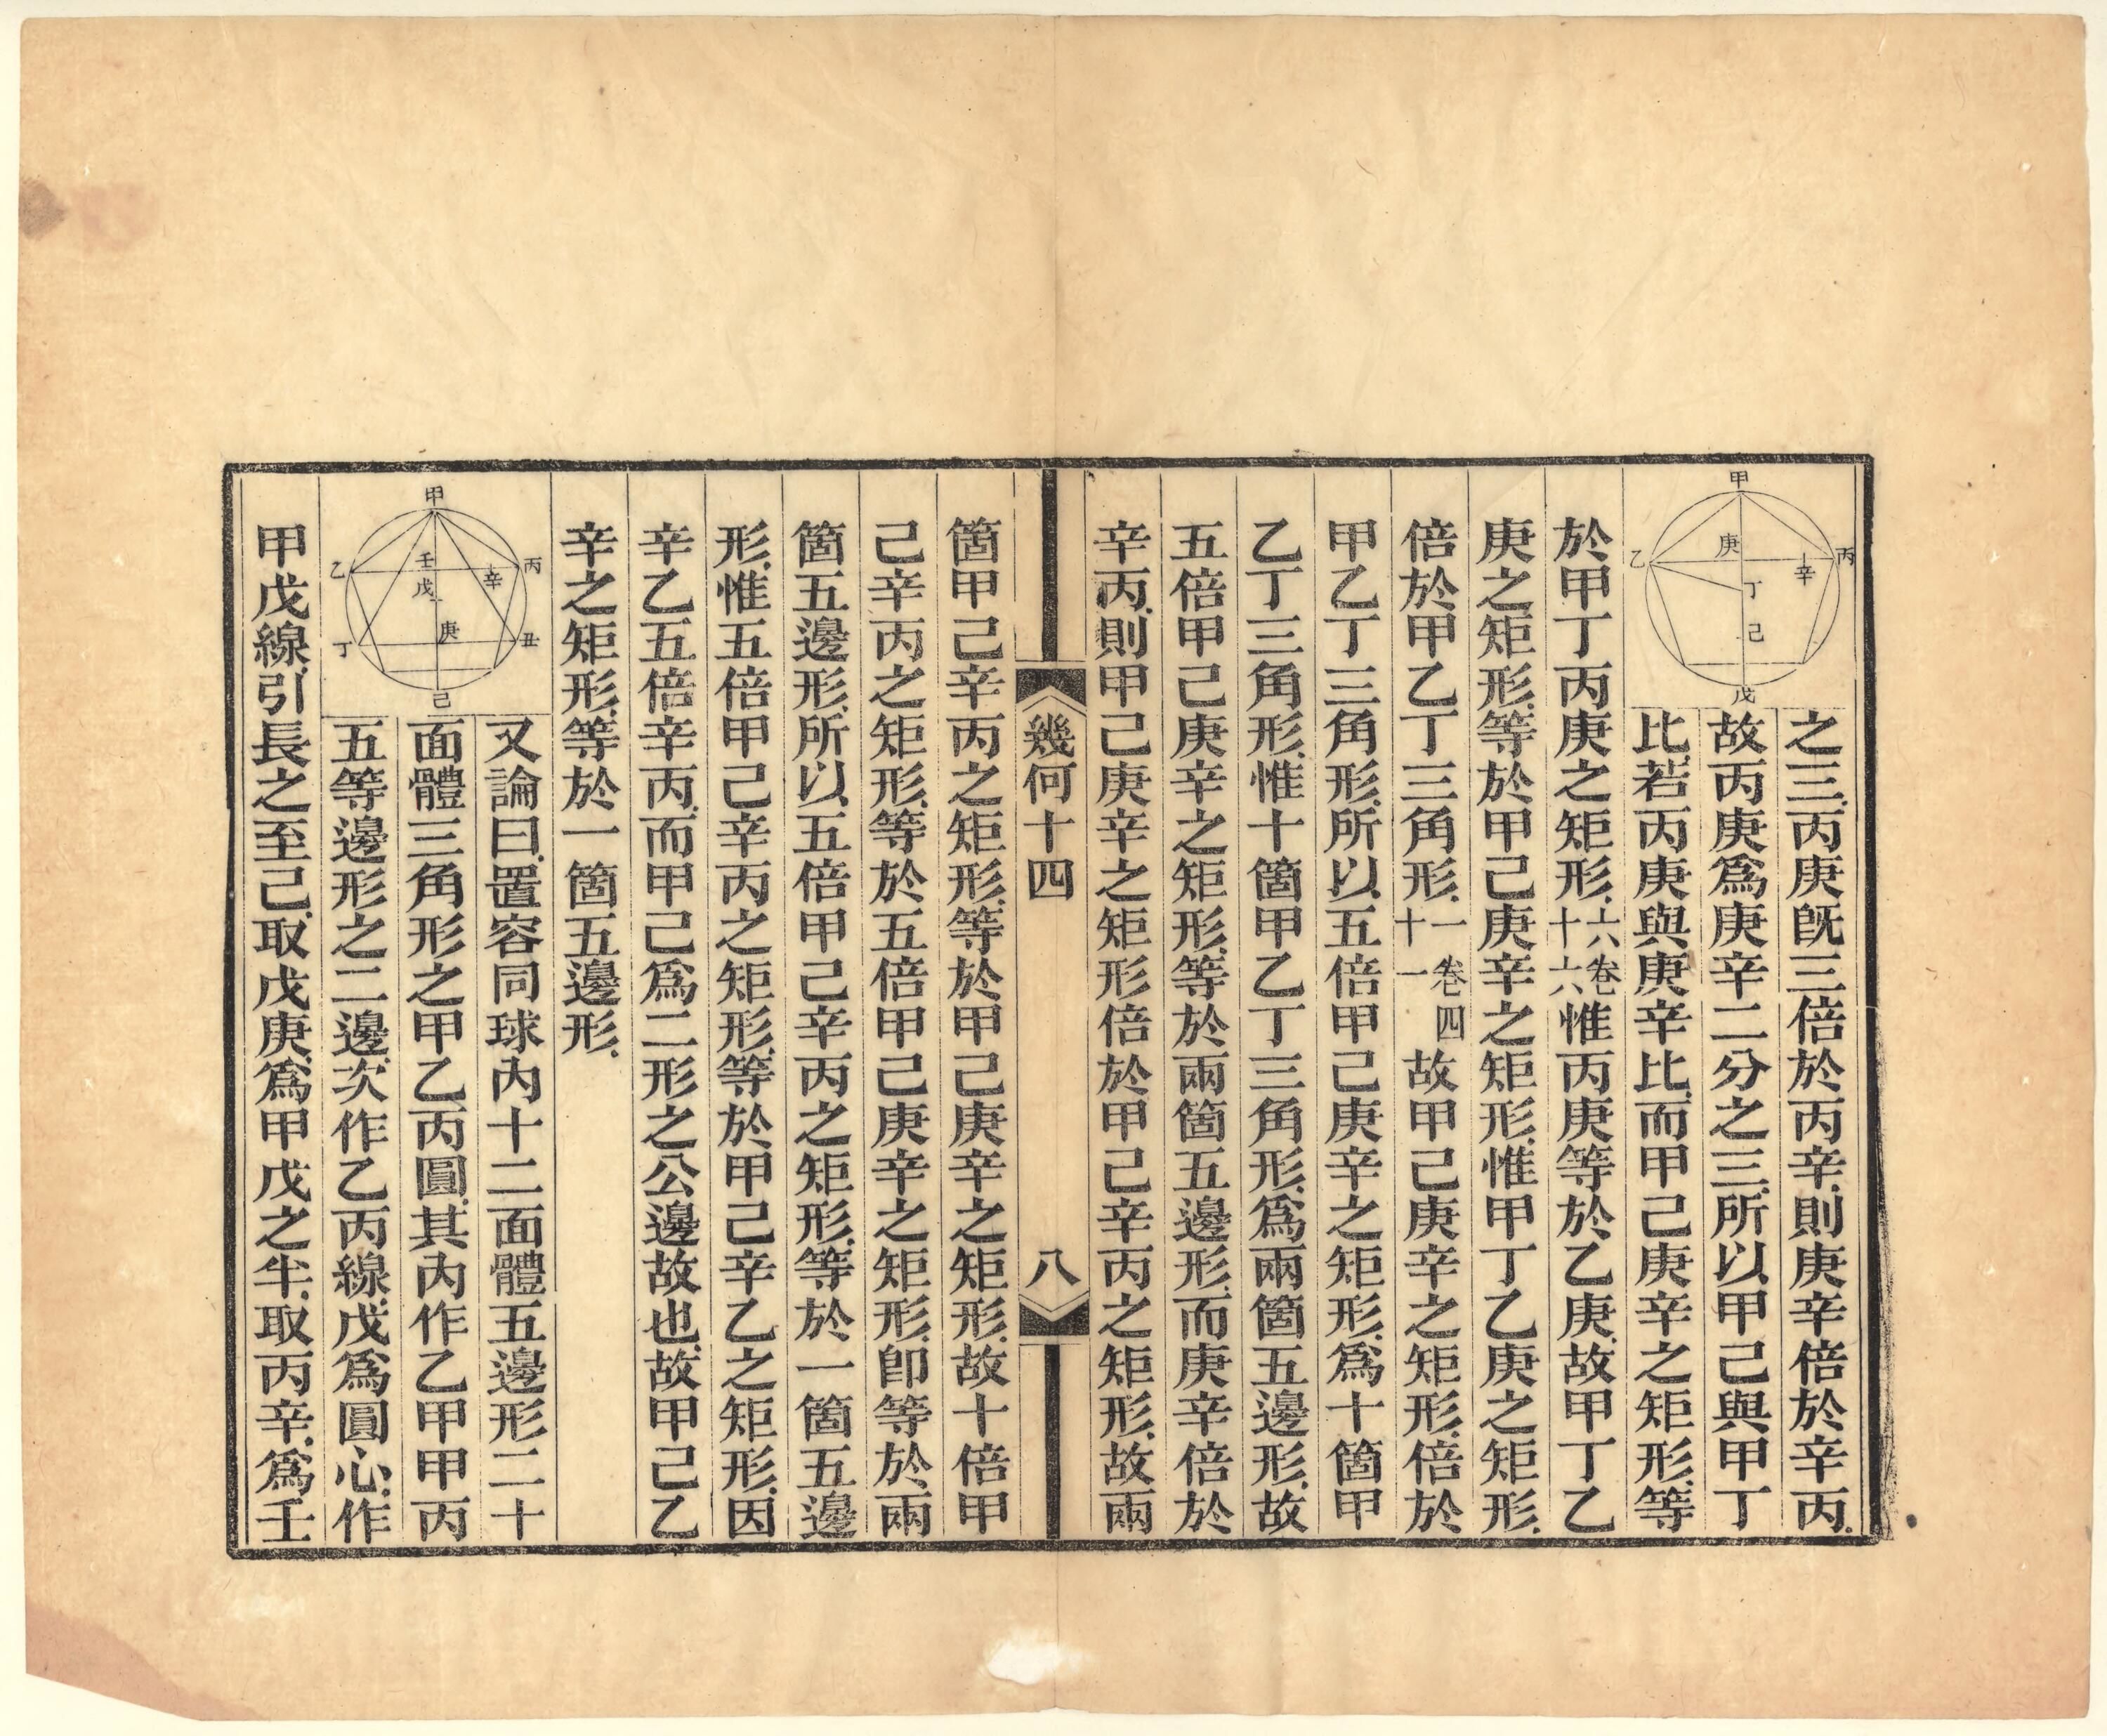 甲
庚
乙
丙
辛
丁
己
戊
之三、丙庚旣三倍於丙辛、則庚辛倍於辛丙、
故丙庚爲庚辛二分之三、所以甲己與甲丁
比、若丙庚與庚辛比、而甲己庚辛之矩形、等
於甲丁丙庚之矩形、六卷十六惟丙庚等於乙庚、故甲丁乙
庚之矩形、等於甲己庚辛之矩形、惟甲丁乙庚之矩形、
倍於甲乙丁三角形、一卷四十一故甲己庚辛之矩形、倍於
甲乙丁三角形、所以五倍甲己庚辛之矩形、爲十箇甲
乙丁三角形、惟十箇甲乙丁三角形、爲兩箇五邊形、故
五倍甲己庚辛之矩形、等於兩箇五邊形、而庚辛倍於
辛丙、則甲己庚辛之矩形倍於甲己辛丙之矩形、故兩
幾何十四
八
箇甲己辛丙之矩形、等於甲己庚辛之矩形、故十倍甲
己辛丙之矩形、等於五倍甲己庚辛之矩形、卽等於兩
箇五邊形、所以五倍甲己辛丙之矩形、等於一箇五邊
形、惟五倍甲己辛丙之矩形、等於甲己辛乙之矩形、因
辛乙五倍辛丙、而甲己爲二形之公邊故也、故甲己乙
辛之矩形、等於一箇五邊形、
甲
壬
戊
乙
丙
辛
庚
丁
丑
己
又論曰、置容同球內十二面體五邊形二十
面體三角形之甲乙丙圓、其內作乙甲甲丙
五等邊形之二邊、次作乙丙線、戊爲圓心、作
甲戊線、引長之至己、取戊庚、爲甲戊之半、取丙辛、爲壬